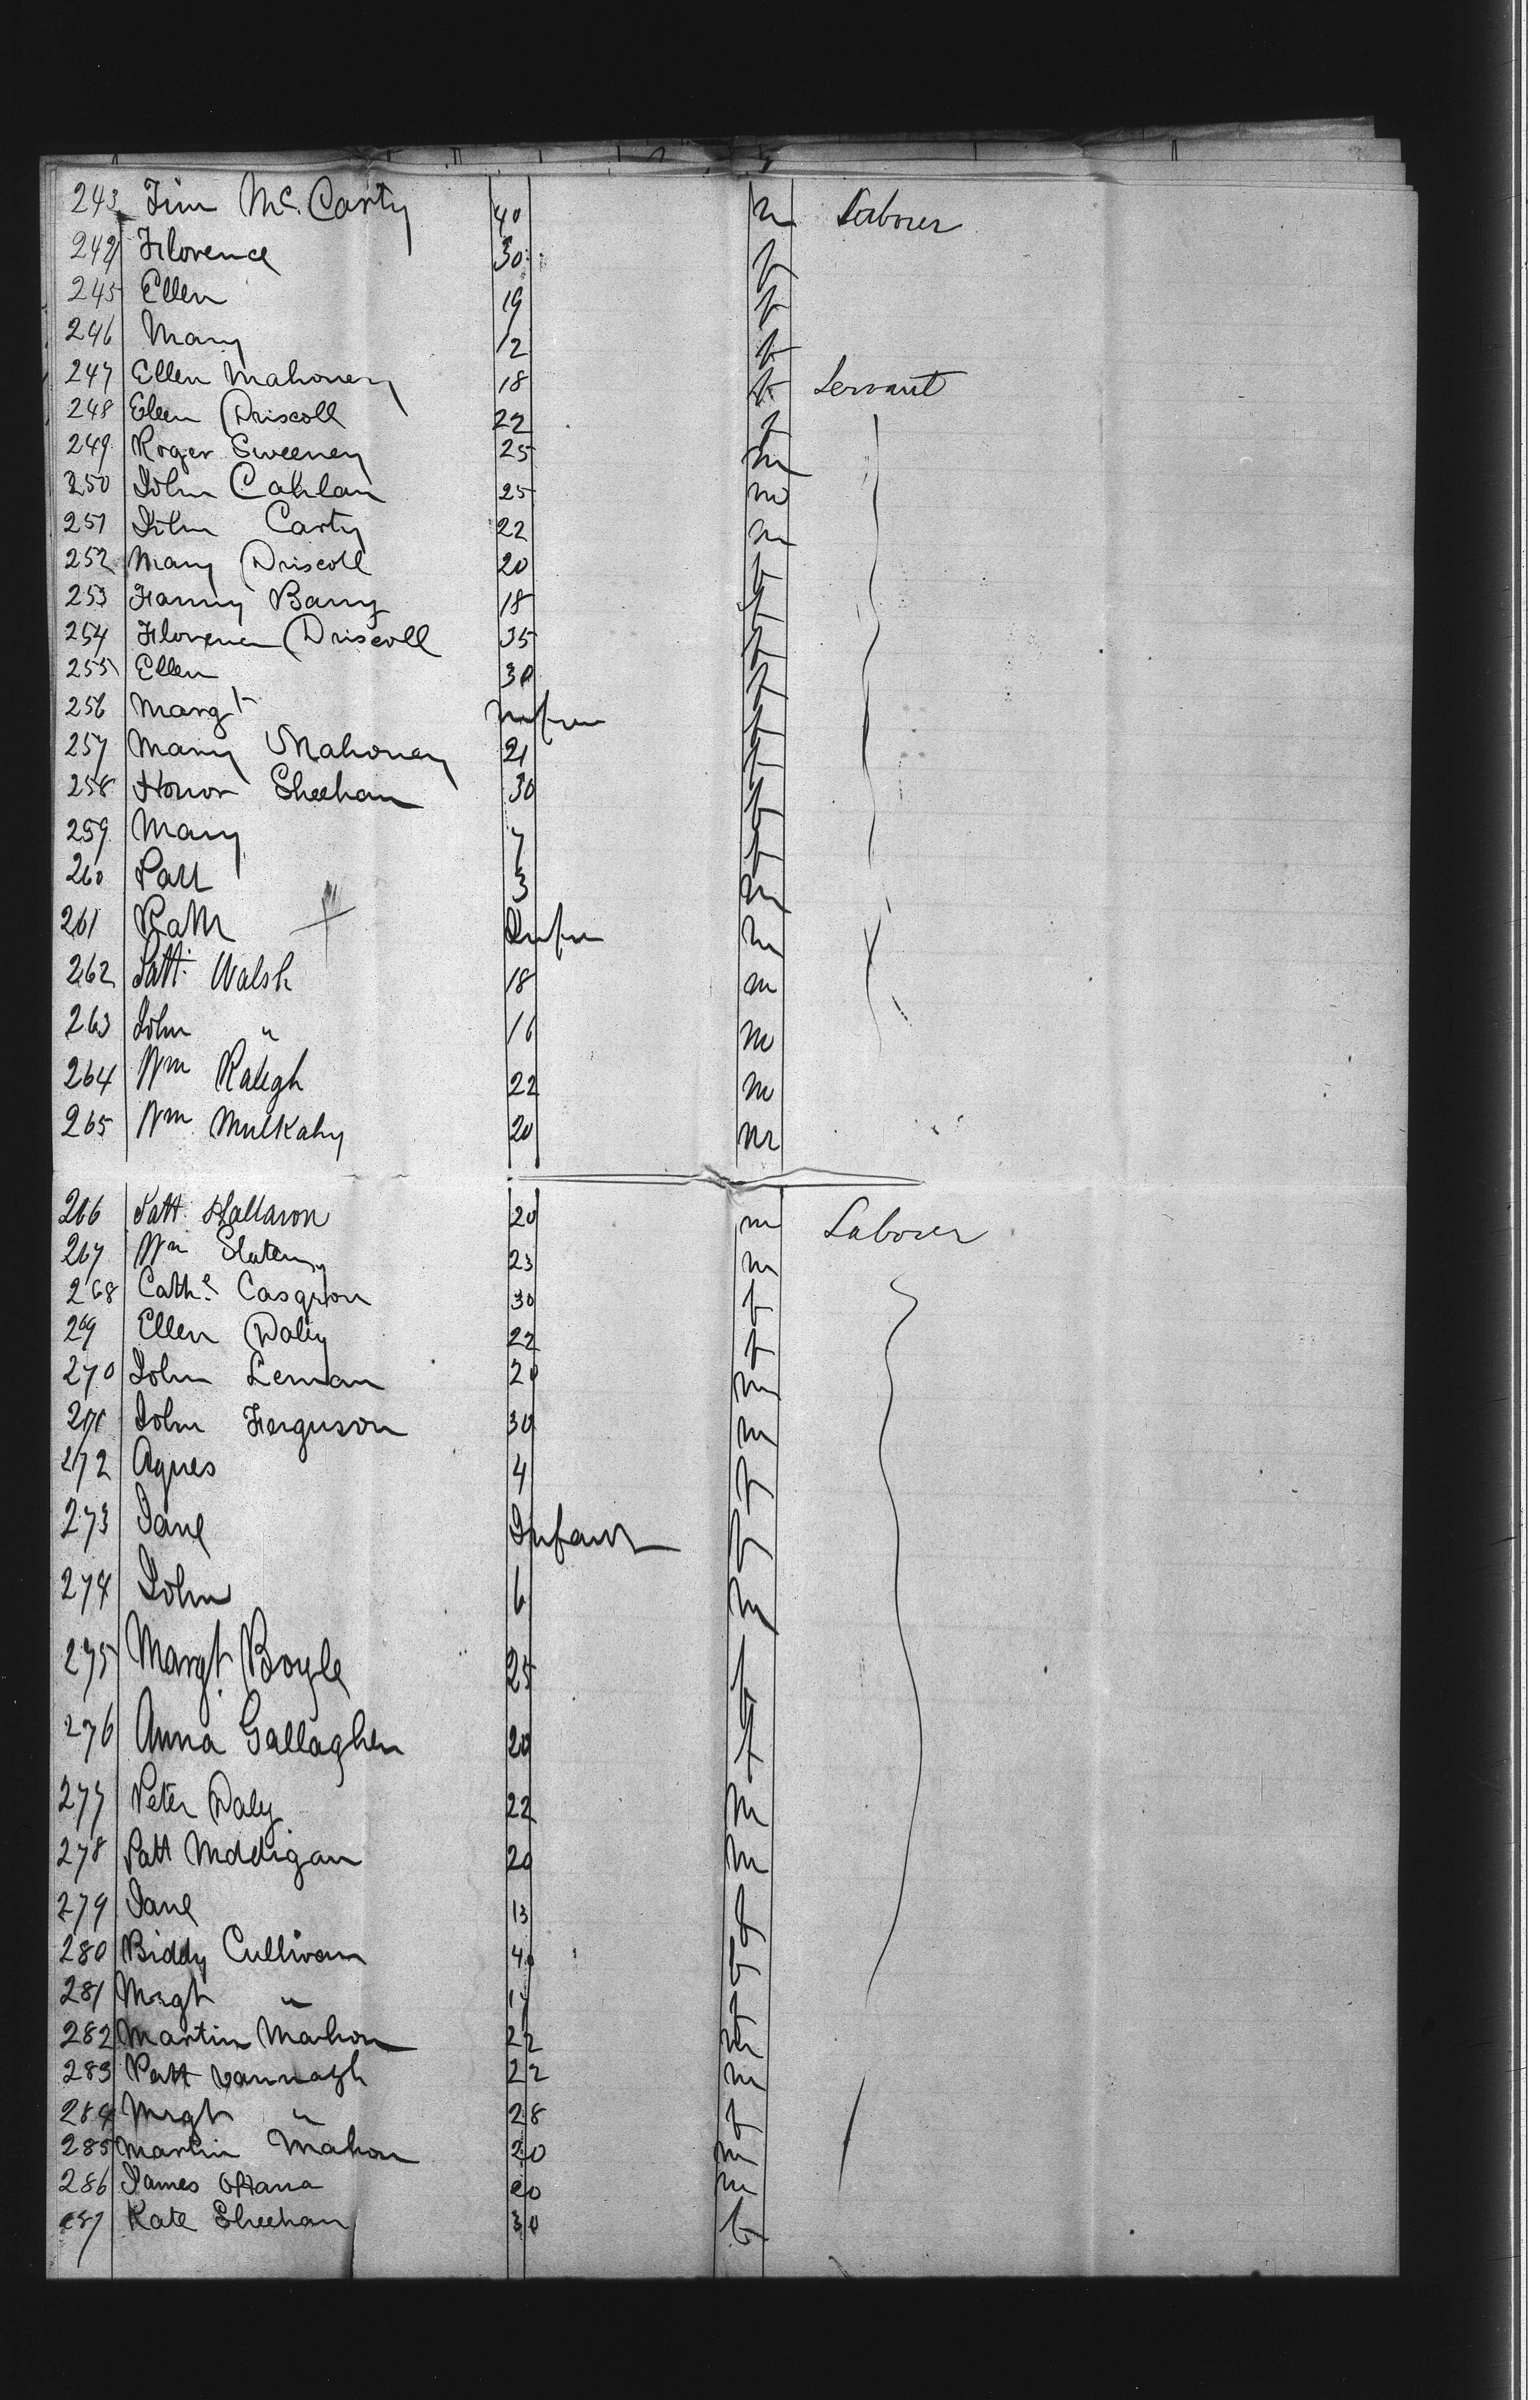 243 Tim Mc. Carty 40 m Labourer
244 Florence 30 f
245 Ellen 19 f
246 Mary 12 f
247 Ellen Mahoney 18 f Servant
248 Ellen Driscoll 22 f
249 Roger Sweeney 25 m
250 John Cahlan 25 m
251 John Carty 22 m
252 Mary Driscoll 20 f
253 Fanny Barry 18 f
254 Florence Driscoll 35 f
255 Ellen 30 f
256 Margt f
257 Mary Mahoney 21 f
258 Honor Sheehan 30 f
259 Mary 7 f
260 Patt 3 m
261 m
262 Patt. Walsh 18 m
263 John " 16 m
264 Wm Ralegh 22 m
265 Wm Mulkahy 20 m
266 Patt. Hallaron 20 m Labourer
267 Wm Slatery 23 m
268 Cathe 30 f
269 Ellen Daley 22 f
270 John Leman 20 m
271 John Ferguson 30 m
272 Agnes 4 f
273 Jane Infant f
274 John 6 m
275 Margt Boyle 25 f
276 Anna Gallagher 20 f
277 Peter Daley 22 m
278 Patt Maddigan 20 m
279 Jane 13 f
280 Biddy Cullivan 40 f
281 Mrgt " f
282 Martin Mahon 22 m
283 Patt 22 m
284 Mrgt " 28 f
285 Martin Mahon 20 m
286 James OHara 20 m
287 Kate Sheehan 30 f